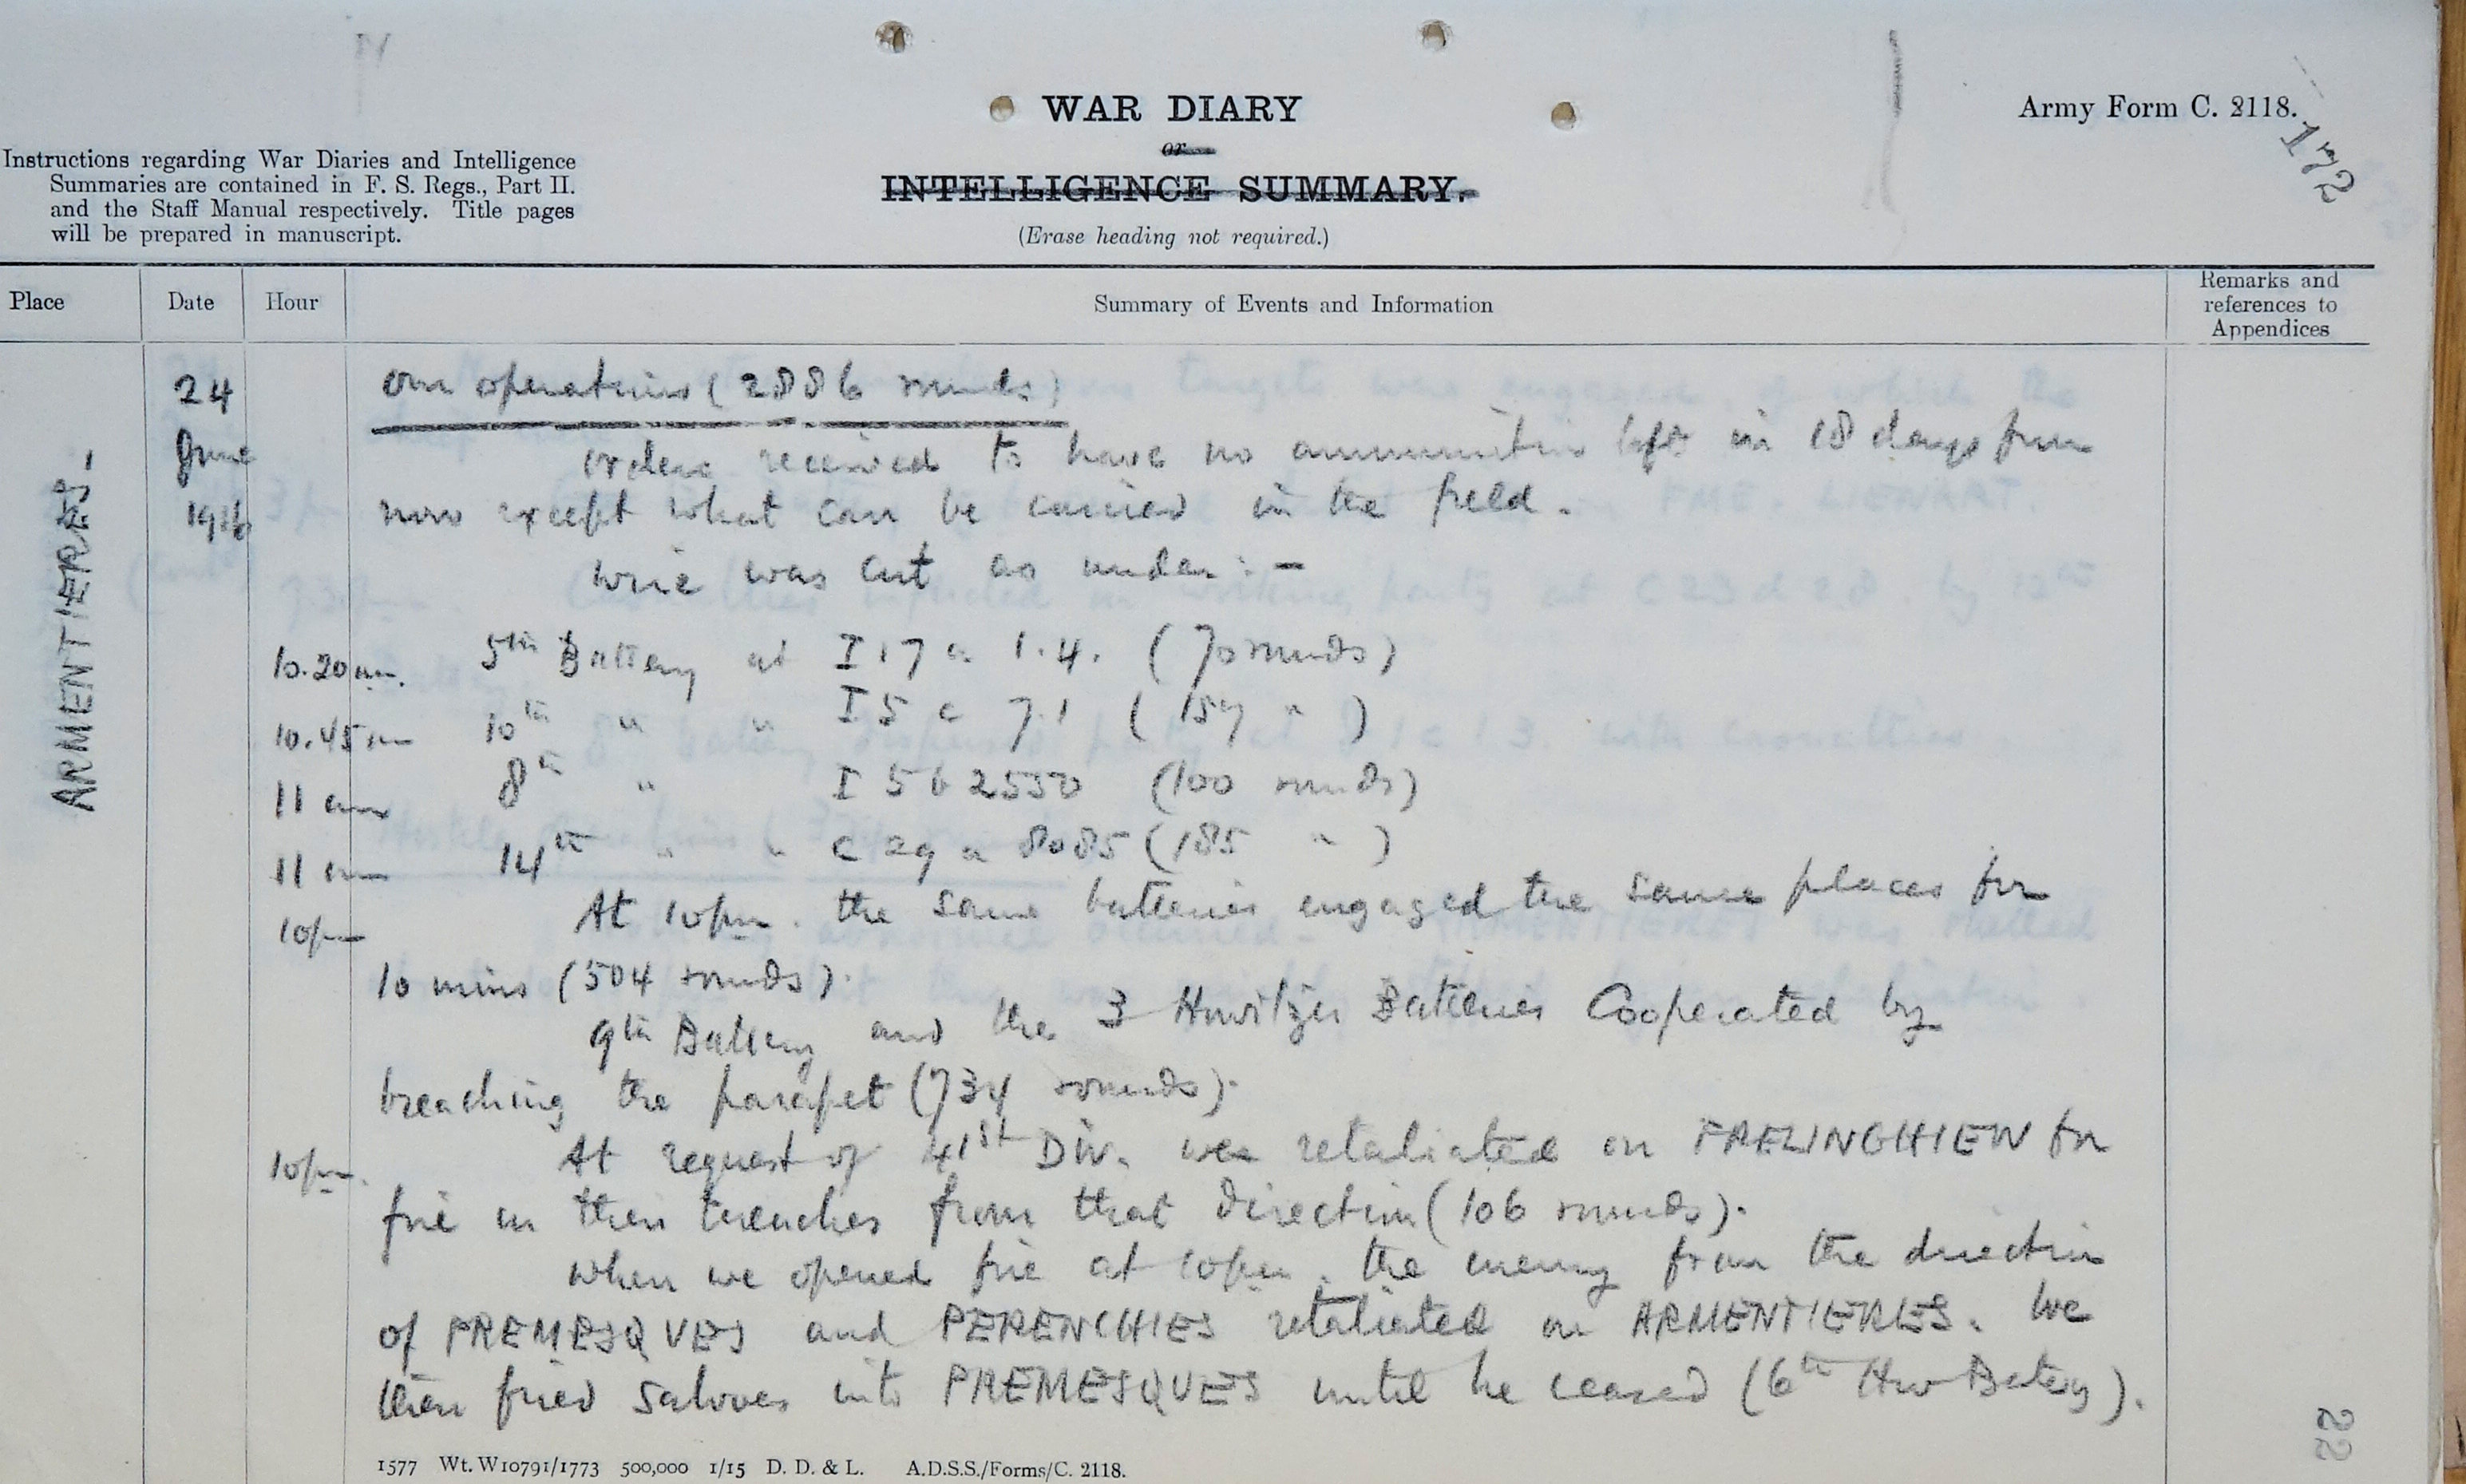 WAR DIARY
or
INTELLIGENCE SUMMARY.
(Erase heading not required.)
Army Form C. 2118.
172
Instructions regarding War Diaries and Intelligence
Summaries are contained in F. S. Regs., Part II.
and the Staff Manual respectively. Title pages
will be prepared in manuscript.
Place Date Hour Summary of Events and Information Remarks and references to Appendices
ARMENTIERES.
24 June 1916
Our operations (2886 rounds)
Orders received to have no ammunition left in 18 days from
now except what can be carried in the field.
Wire was cut as under :-
10.20 am. 5th Battery at I 17 a 1.4. (70 rounds)
10.45 am 10th " " I 5 c 7.1 (157 " )
11 am 8th " I 5 b 2550 (100 rounds)
11 am 14th " " C 29 a 8085 (185 " )
10pm At 10pm. the same batteries engaged the same places for
10 mins (504 rounds).
9th Battery and the 3 Howitzer Batteries Cooperated by
breaching the parapet (734 rounds).
10pm. At request of 41st Div. we retaliated on FRELINGHIEN for
fire on their trenches from that direction (106 rounds).
When we opened fire at 10pm. the enemy from the direction
of PREMESQUES and PERENCHIES retaliated on ARMENTIERES. We
then fired salvoes into PREMESQUES until he ceased (6th How Battery).
1577 Wt. W10791/1773 500,000 1/15 D. D. & L. A.D.S.S./Forms/C. 2118.
22